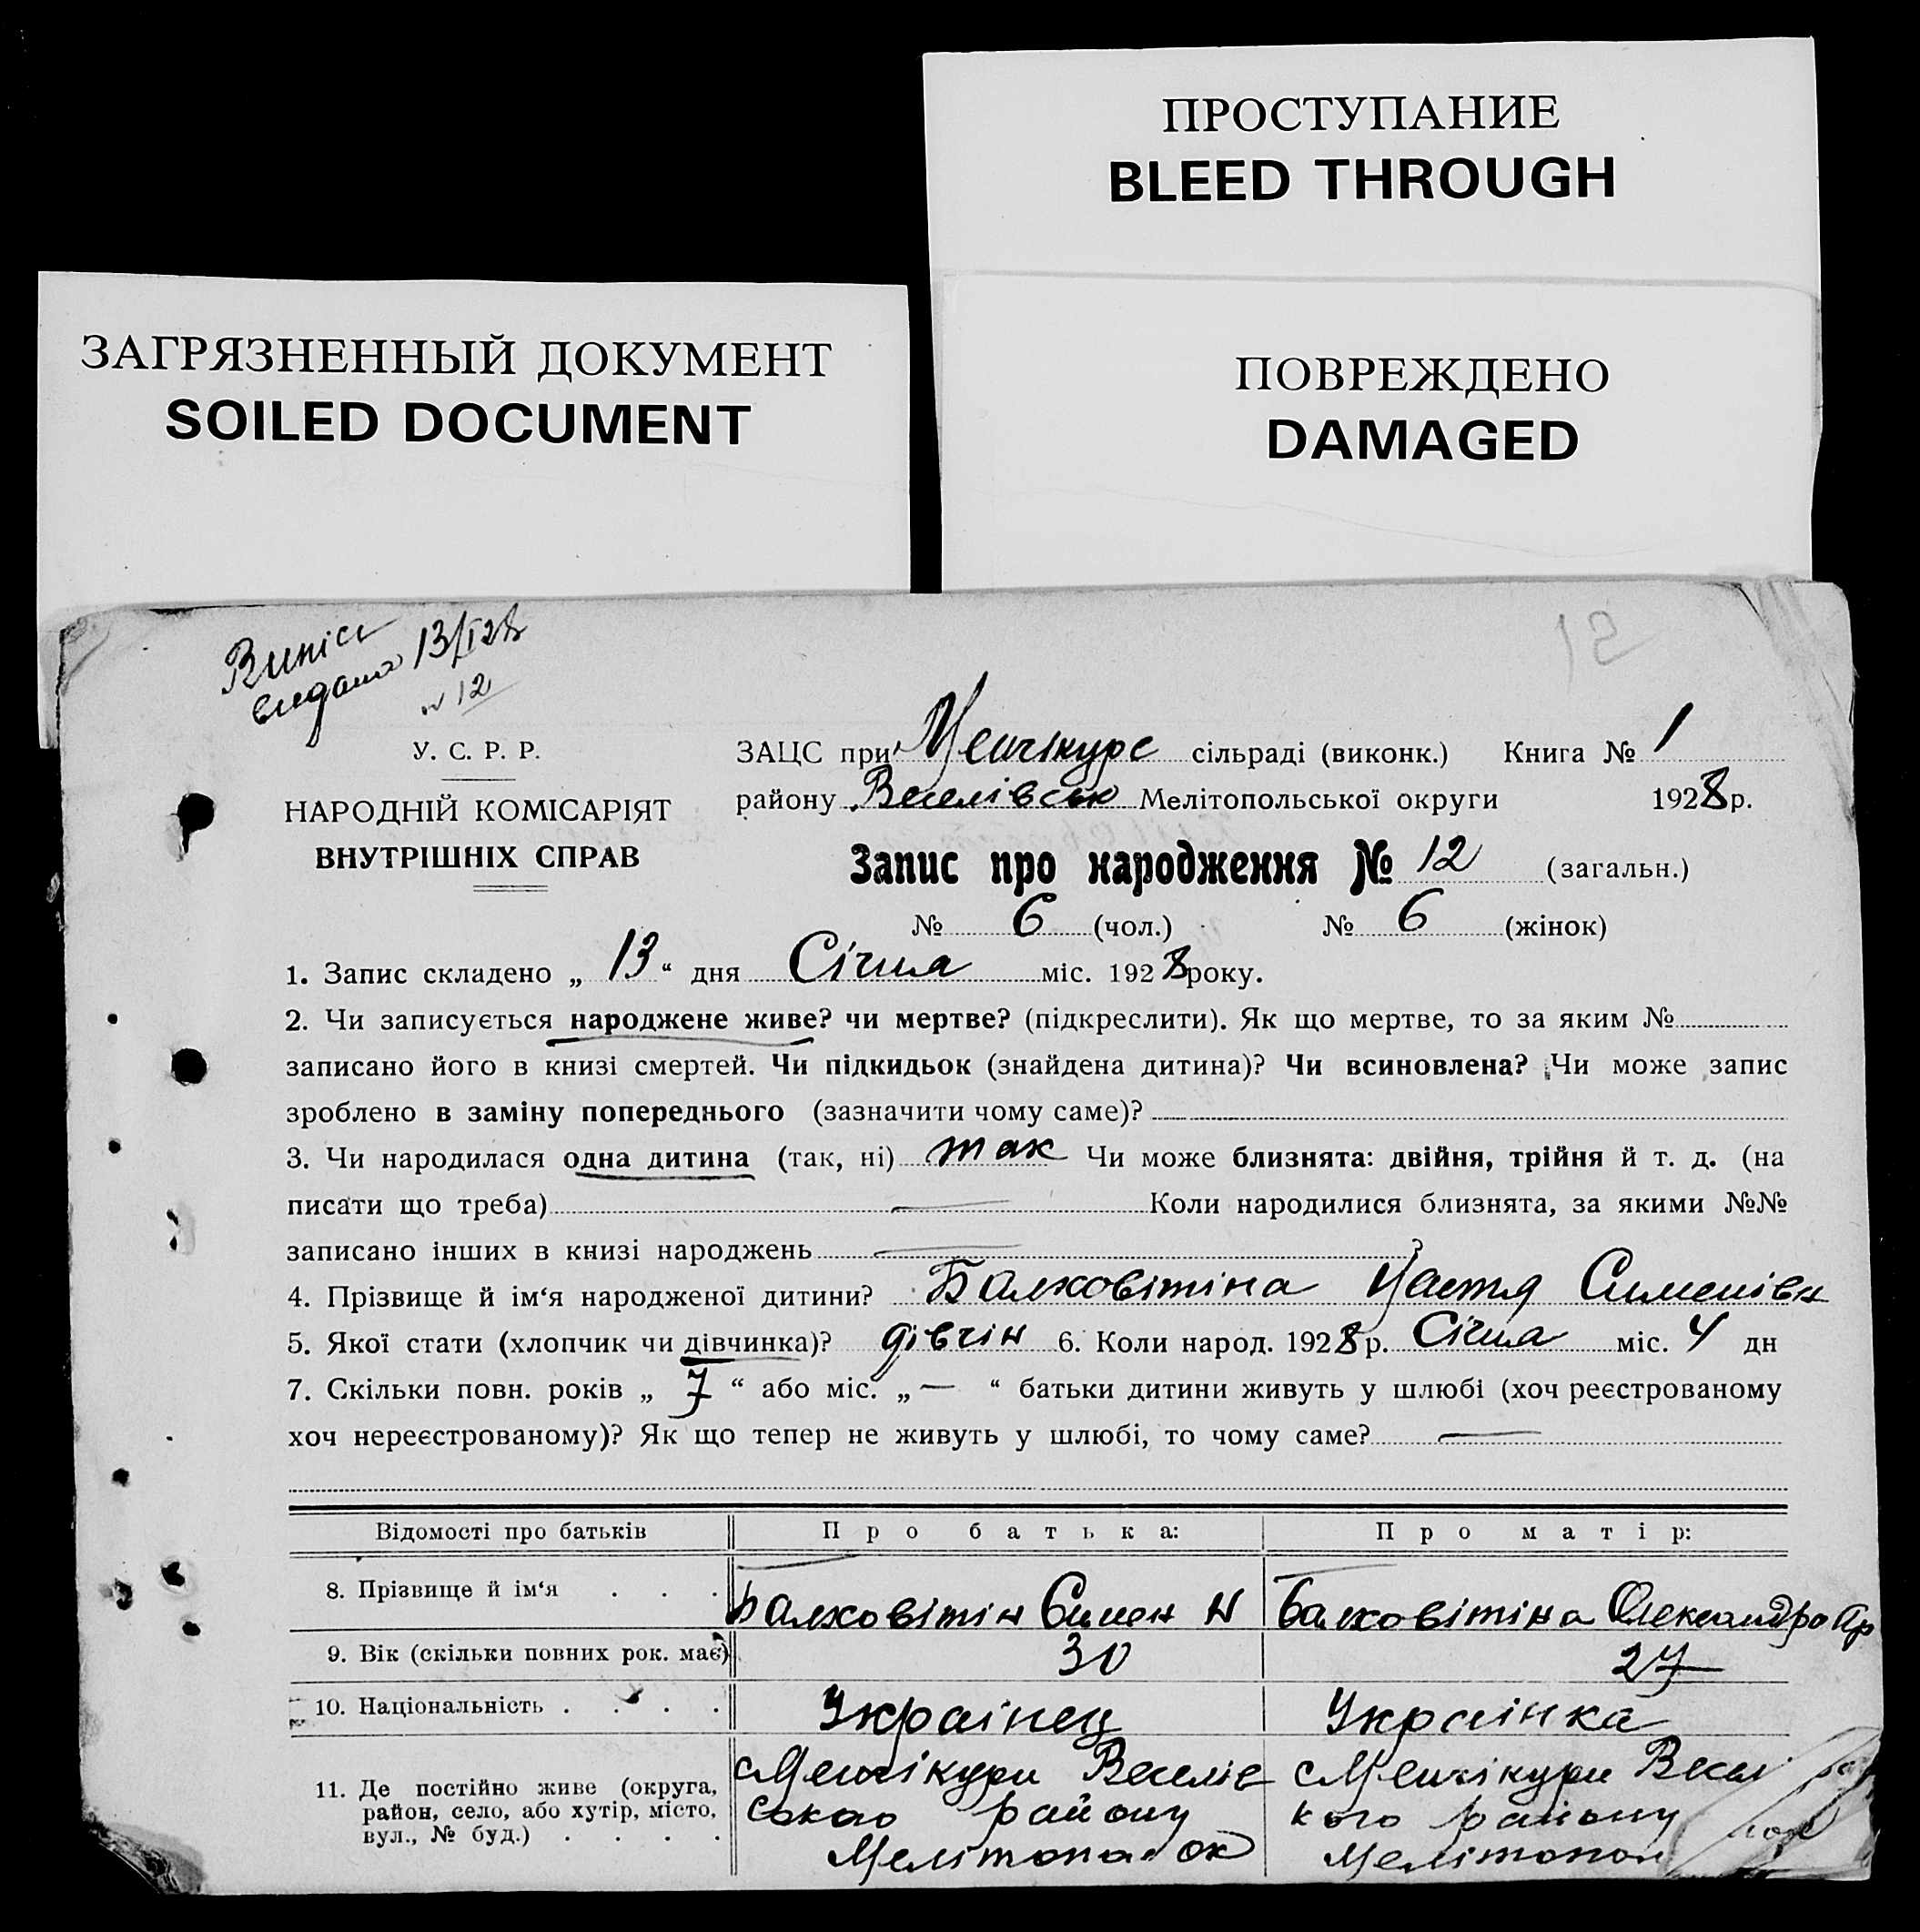 ПРОСТУПАНИЕ
BLEED THROUGH
ЗАГРЯЗНЕННЫЙ ДОКУМЕНТ
SOILED DOCUMENT
ПОВРЕЖДЕНО
DAMAGED
12
Випісь
видана 13/I 28
№ 12
У. С. Р. Р.
НАРОДНІЙ КОМІСАРІЯТ
ВНУТРІШНІХ СПРАВ
ЗАЦС при Менчікурс сільраді (виконк.) Книга № 1
району Веселівськ Мелітопольської округи 1928 р.
Запис про народження № 12 (загальн.)
№ 6 (чол.) № 6 (жінок)
1. Запис складено „ 13 “ дня Січня міс. 1928 року.
2. Чи записується народжене живе? чи мертве? (підкреслити). Як що мертве, то за яким №
записано його в книзі смертей. Чи підкидьок (знайдена дитина)? Чи всиновлена? Чи може запис
зроблено в заміну попереднього (зазначити чому саме)?
3. Чи народилася одна дитина (так, ні) так Чи може близнята: двійня, трійня й т. д. (на
писати що треба) — Коли народилися близнята, за якими №№
записано інших в книзі народжень — ?
4. Прізвище й ім‘я народженої дитини? Балковітіна Настя Сименівн
5. Якої стати (хлопчик чи дівчинка)? дівчін 6. Коли народ. 1928 р. Січня міс. 4 дн
7. Скільки повн. років „ 7 “ або міс. „ — “ батьки дитини живуть у шлюбі (хоч реєстрованому
хоч нереєстрованому)? Як що тепер не живуть у шлюбі, то чому саме? —
Відомості про батьків Про батька: Про матір:
8. Прізвище й ім‘я . . . Балковітін Симен Н Балковітіна Олександра Ар
9. Вік (скільки повних рок. має) 30 27
10. Національність . . . . Українец Українка
11. Де постійно живе (округа, район, село, або хутір, місто, вул., № буд.) . . . .
Менчікури Веселів
ського району
Мелітопол ок
Менчікури Весел
кого району
Мелітопол